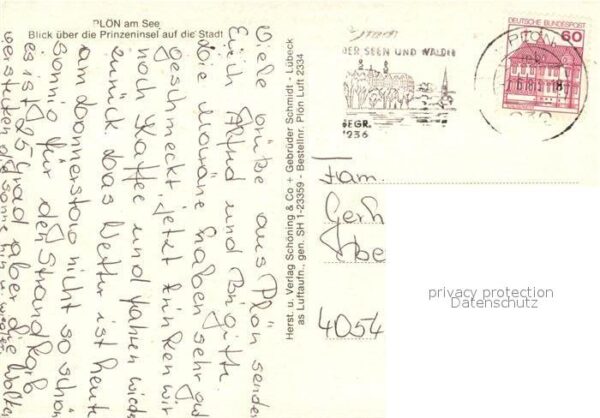 PLÖN am See
Blick über die Prinzeninsel auf die Stadt
Viele Grüße aus Plön senden
Euch Alfred und Brigitte.
Die Maräne haben sehr gut
geschmeckt, jetzt trinken wir
noch Kaffee und fahren wieder
zurück. Das Wetter ist heute
am Donnerstag nicht so schön
sonnig für den Strandkorb
es ist 25 Grad aber die Wolken
verstecken die Sonne hin u. wieder
Herst. u. Verlag Schöning & Co + Gebrüder Schmidt - Lübeck
as Luftaufn., gen. SH 1-23359 - Bestellnr. Plön Luft 2334
DER SEEN UND WÄLDER
GEGR.
1236
PLÖN
DEUTSCHE BUNDESPOST
60
Fam.
Gerh
4054
privacy protection
Datenschutz